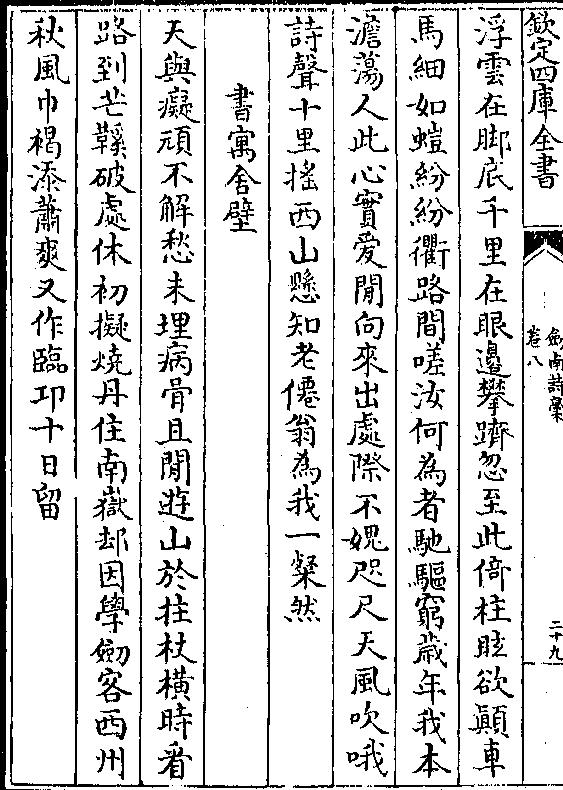 欽定四庫全書
劍南詩稾
卷八
二十九
浮雲在脚底千里在眼邊攀躋忽至此倚柱眩欲顚車
馬細如螘紛紛衢路間嗟汝何為者馳驅窮歲年我本
澹蕩人此心實愛閒向來出處際不媿咫尺天風吹哦
詩聲十里搖西山懸知老僊翁為我一粲然
書寓舍壁
天與癡頑不解愁未埋病骨且閒遊山於拄杖橫時看
路到芒鞵破處休初擬燒丹住南嶽却因學劒客西州
秋風巾褐添蕭爽又作臨卭十日留